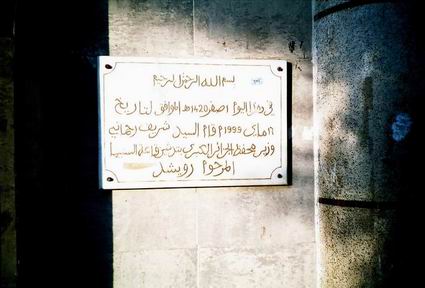 بسم الله الرحمن الرحيم
في هذا اليوم 1 صفر 1420هـ الموافق لتاريخ
16 ماي 1999م قام السيد شريف رحماني
وزير محافظ الجزائر الكبرى بتدشين قاعة السينما
المرحوم رويشد